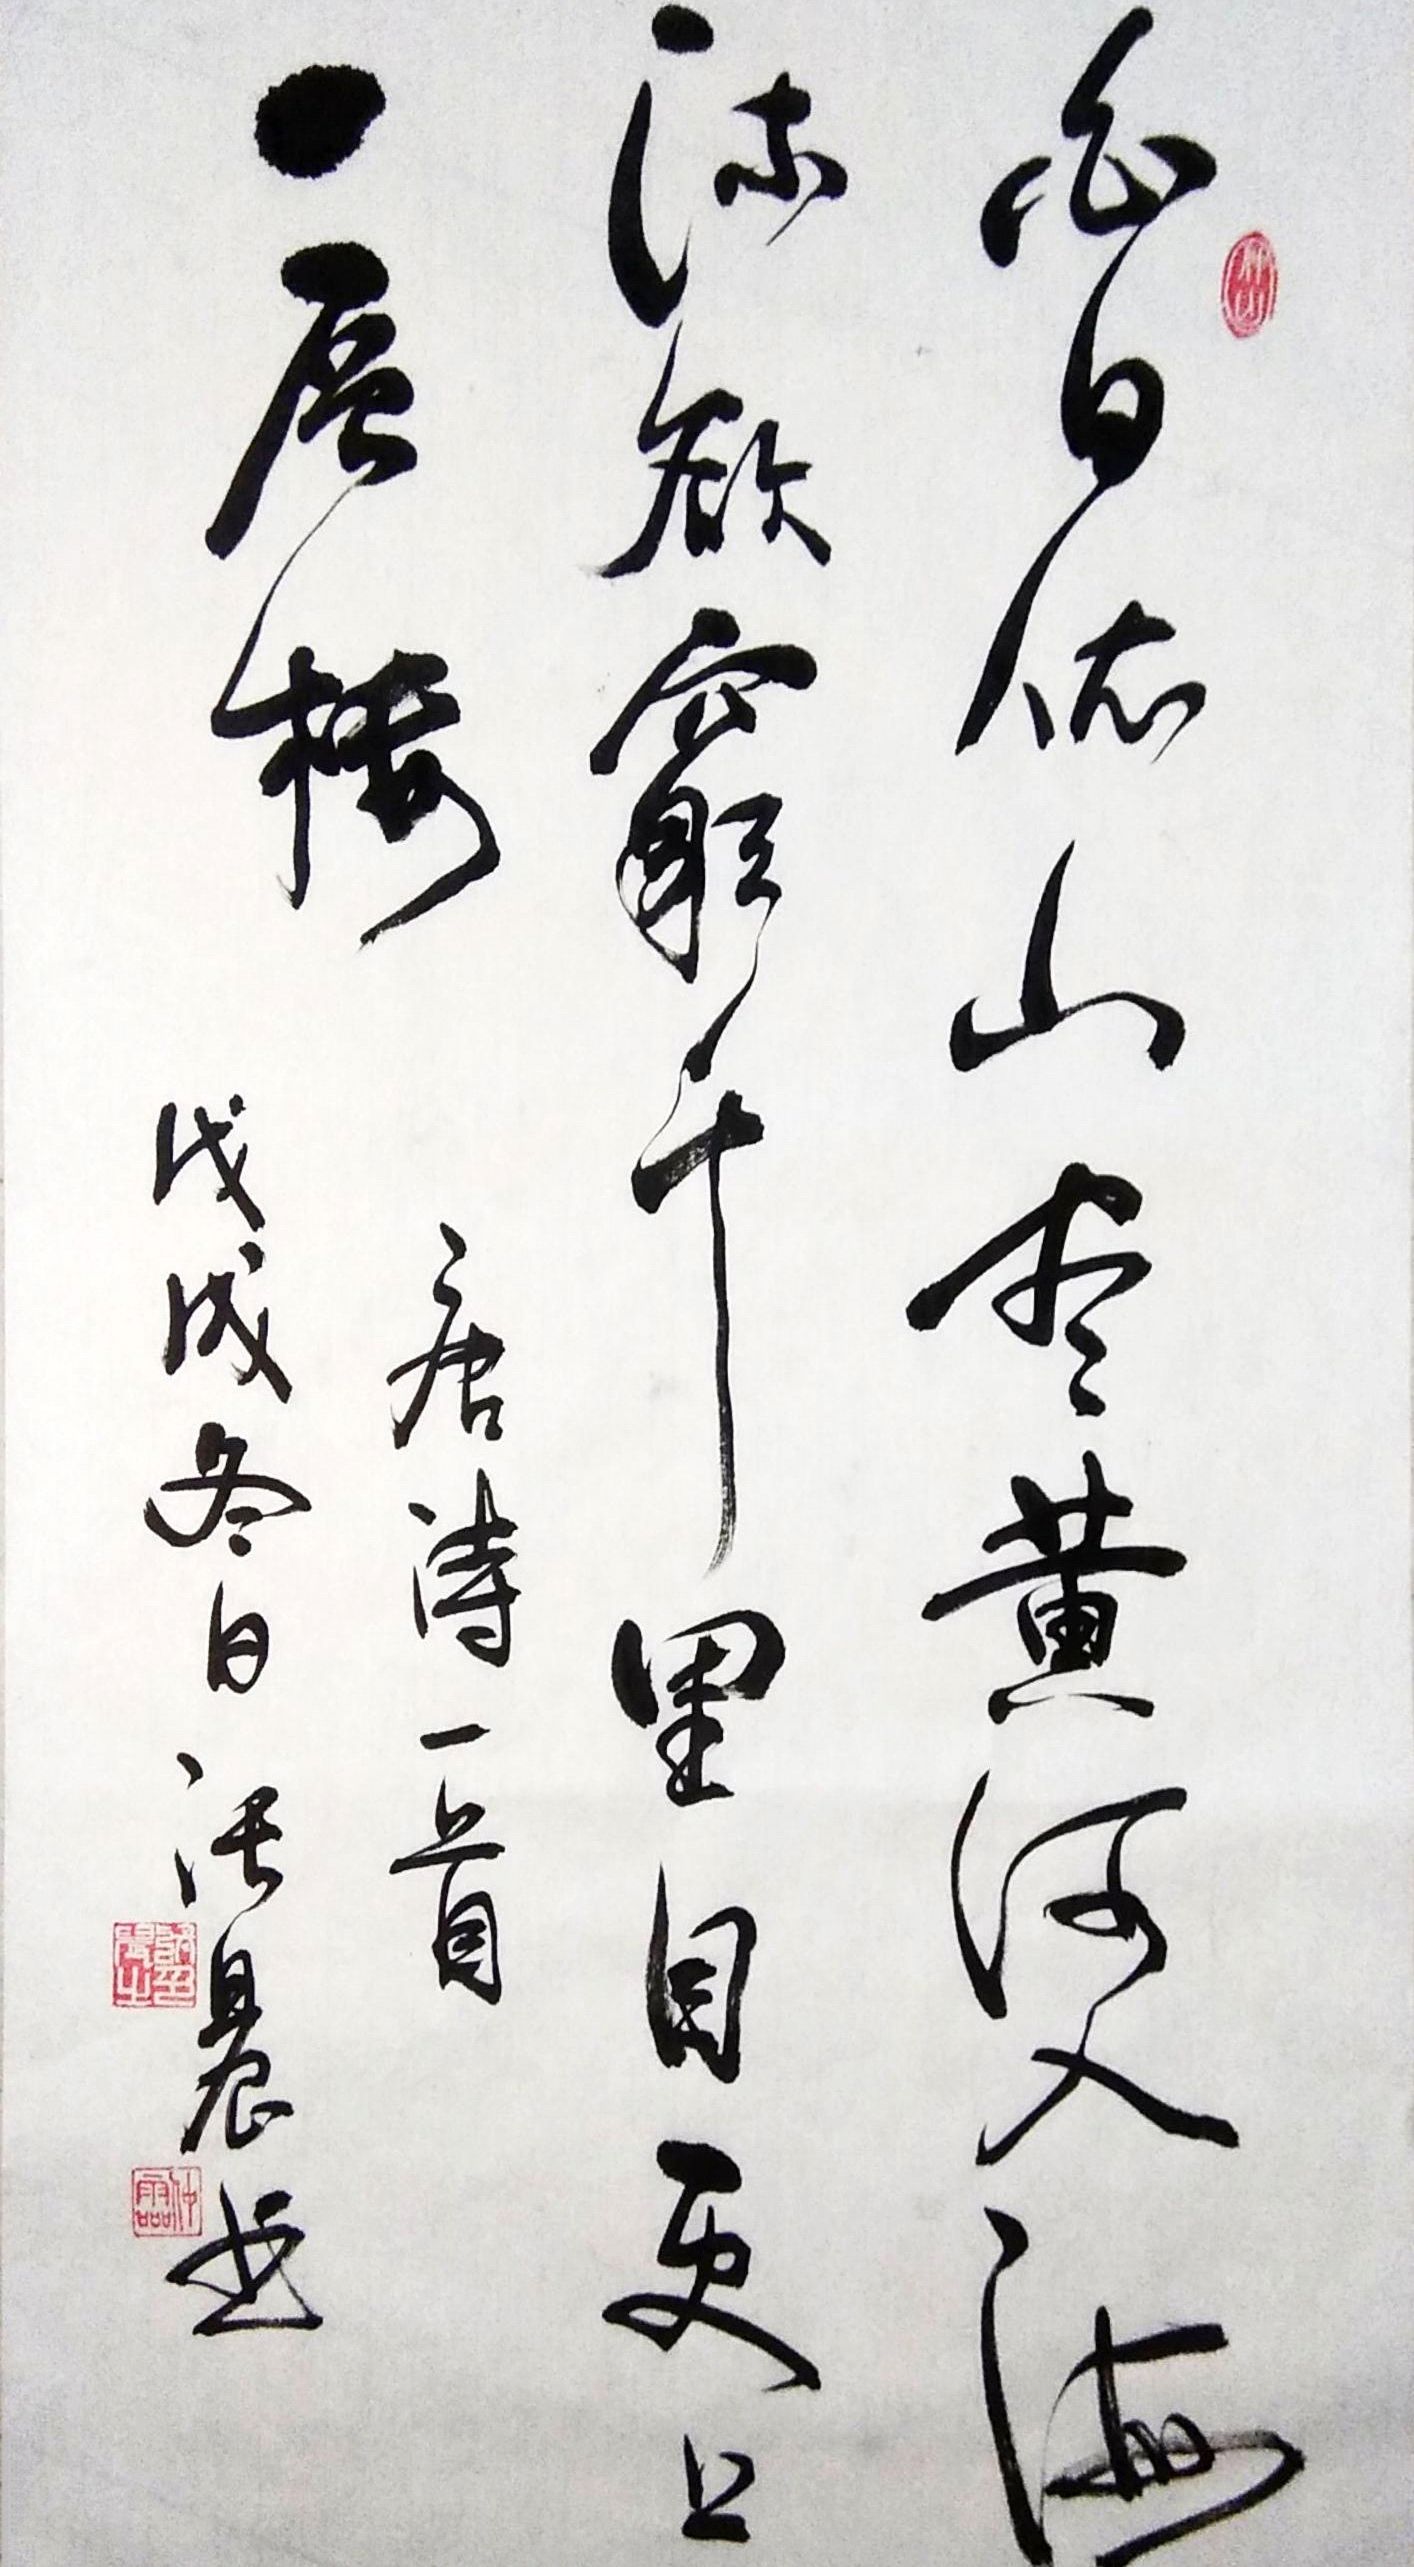 白日依山尽黄河入海
流欲窮千里目更上
一层楼
唐诗一首
戊戌冬日浩晨书